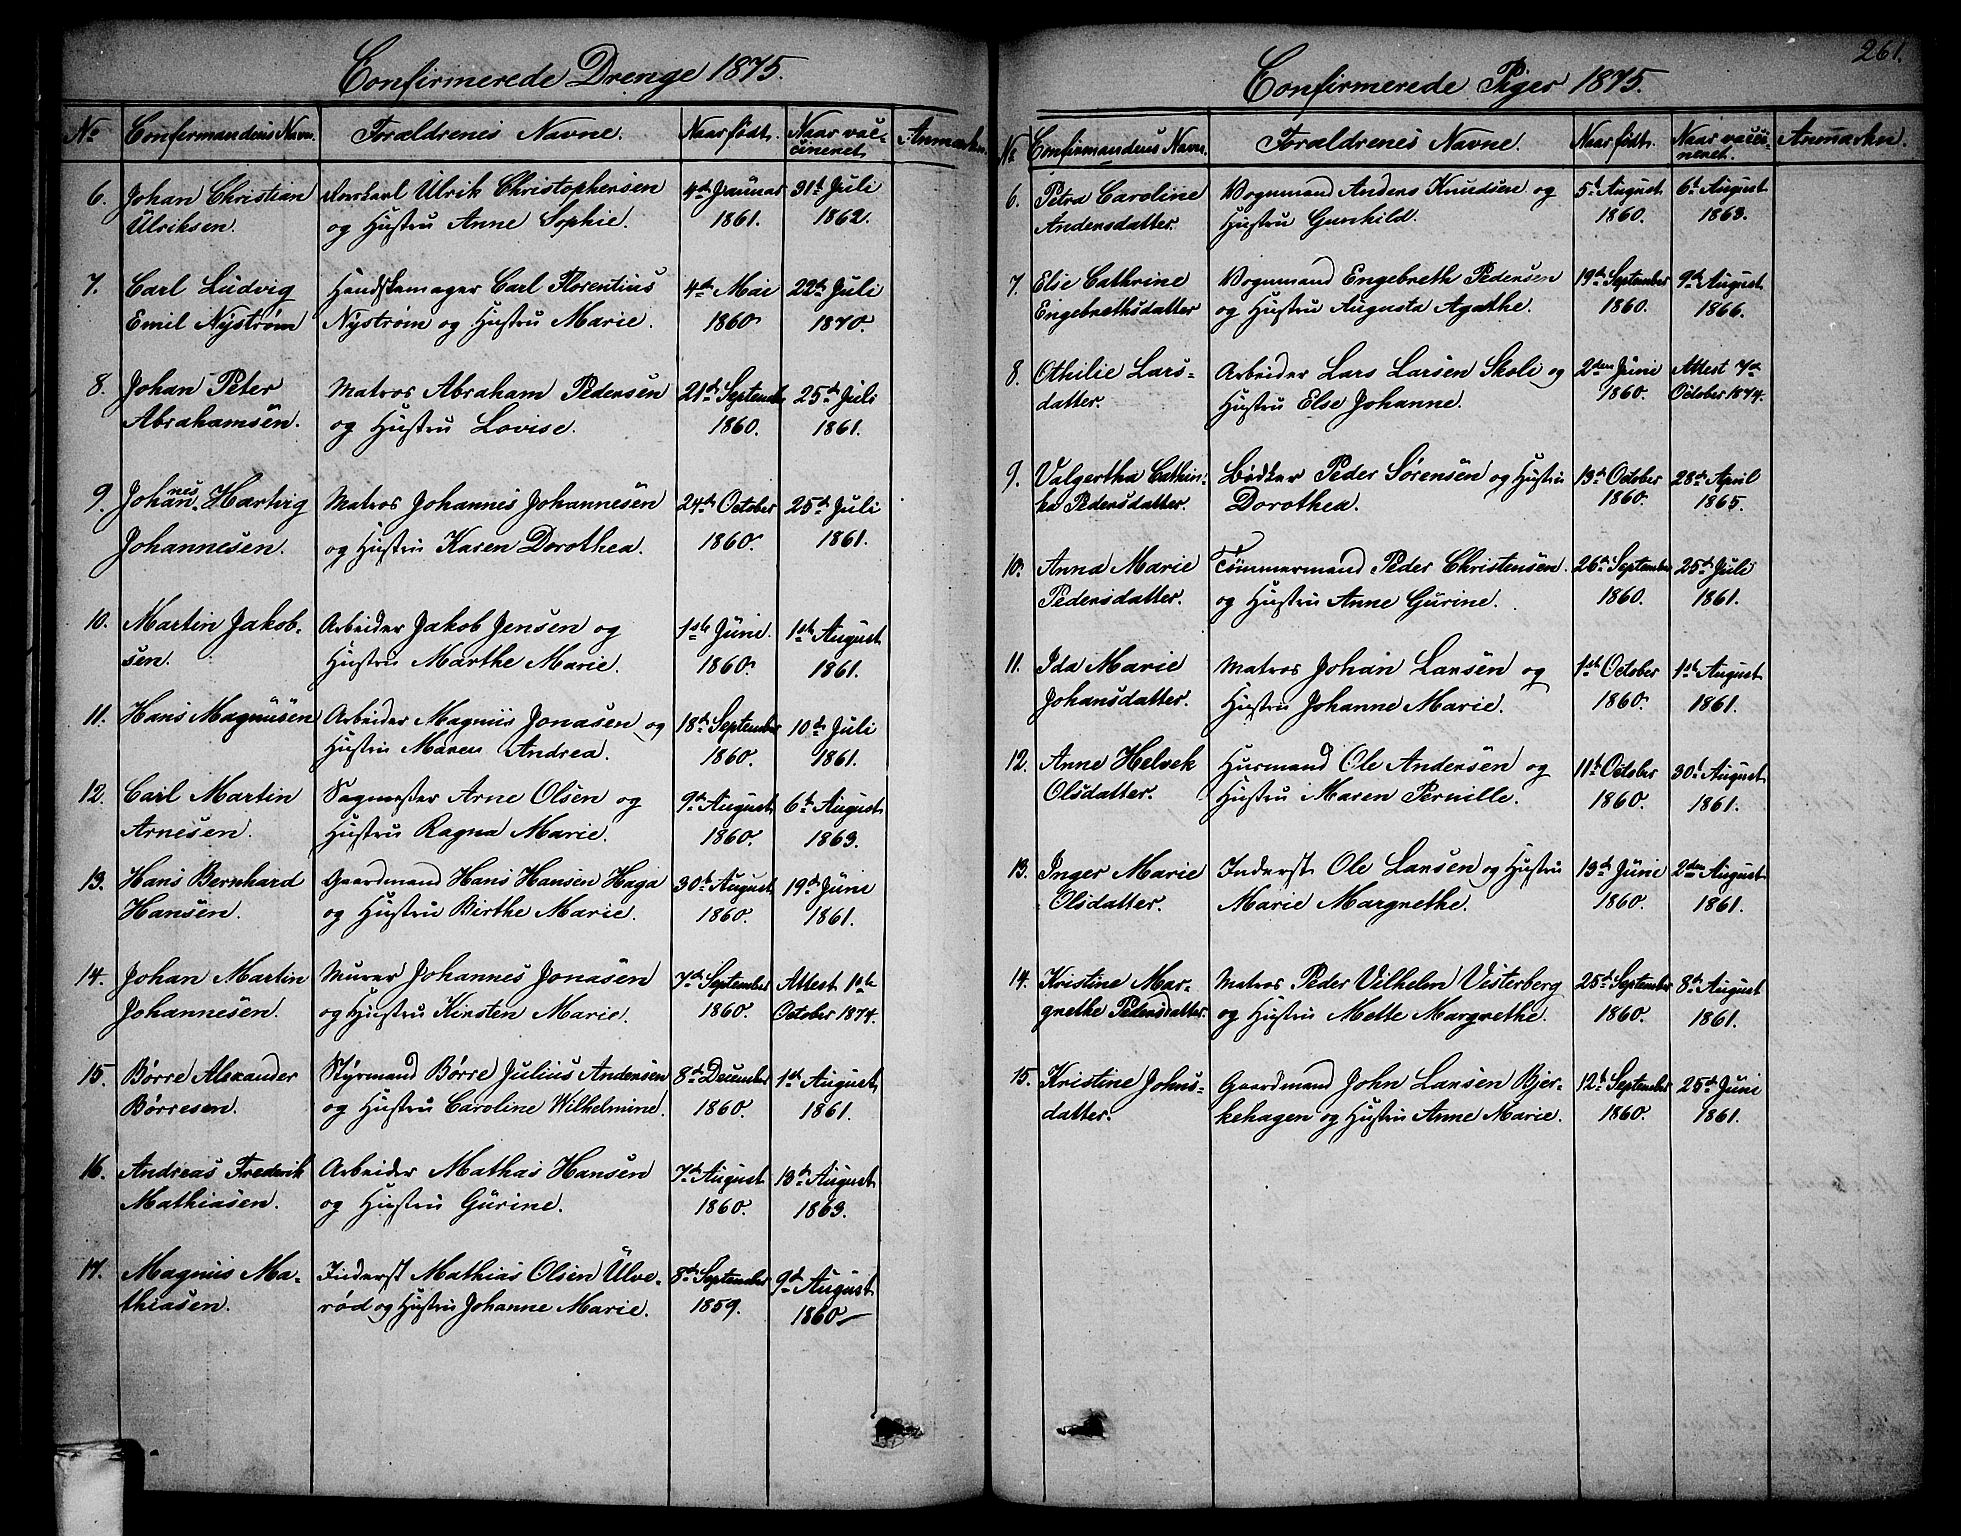 Confirmerede Drenge 1875.
No Confirmandens Navn. Forældrenes Navne. Naar født. Naar vac-
cineret Anmærkn.
6. Johan Christian Ulrik Christophersen 4de Januar 31te Juli
Ulriksen. og Hustru Anne Sophie. 1861. 1862.
7. Carl Ludvig Handskemager Carl Florentius 4de Mai 22de Juli
Emil Nystrøm Nystrøm og Hustru Marie. 1860. 1870.
8. Johan Peter Matros Abraham Pedersen 21de September 25de Juli
Abrahamsen. og Hustru Lovise. 1860. 1861.
9. Johannes Hartvig Matros Johannes Johannesen 24de October 25de Juli
Johannesen. og Hustru Karen Dorothea. 1860. 1861.
10. Martin Jakob- Arbeider Jakob Jensen og 1ste Juni 1ste August
sen. Hustru Marthe Marie. 1860. 1861.
11. Hans Magnusen Arbeider Magnus Jonasen og 18de September 10de Juli
Hustru Maren Andrea. 1860. 1861.
12. Carl Martin Sagmester Arne Olsen og 9de August 6te August
Arnesen. Hustru Ragna Marie. 1860. 1863.
13. Hans Bernhard Gaardmand Hans Hansen Haga 30te August 19de Juni
Hansen. og Hustru Birthe Marie. 1860. 1861.
14. Johan Martin Murer Johannes Jonasen 7de September Attest 1ste
Johannesen. og Hustru Kirsten Marie. 1860. October 1874.
15. Børre Alexander Styrmand Børre Julius Andersen 8de December 1ste August
Børresen. og Hustru Caroline Wilhelmine. 1860. 1861.
16. Andreas Frederik Arbeider Mathias Hansen 7de August 13de August
Mathiasen. og Hustru Gurine. 1860. 1863.
17. Magnus Ma- Inderst Mathias Olsen Ulve- 8de September 9de August
thiasen. rød og Hustru Johanne Marie. 1859. 1860
261.
Confirmerede Piger 1875.
No Confirmandens Navn. Forældrenes Navne. Naar født. Naar vacci-
neret. Anmærkn.
6. Petra Caroline Vognmand Anders Knudsen og 5te August 6te August
Andersdatter. Hustru Gunhild. 1860. 1863.
7. Else Cathrine Vognmand Engebreth Pedersen 19de September 9de August
Engebrethsdatter og Hustru Augusta Agathe. 1860. 1866.
8. Othilie Lars- Arbeider Lars Larsen Skoli og 2den Juni Attest 7de
datter. Hustru Else Johanne. 1860. October 1874.
9. Valgertha Cathin- Bødker Peder Sørensen og Hustru 13de October 28de April
ka Pedersdatter. Dorothea. 1860. 1865.
10. Anna Marie Tømmermand Peder Christensen 26de September 25de Juli
Pedersdatter. og Hustru Anne Gurine. 1860. 1861.
11. Ida Marie Matros Johan Larsen og 1ste October 1ste August
Johansdatter. Hustru Johanne Marie. 1860. 1861.
12. Anne Helvek Husmand Ole Andersen og 11te October 30te August
Olsdatter. Hustru Maren Pernille. 1860. 1861.
13. Inger Marie Inderst Ole Larsen og Hustru 13de Juni 2den August
Olsdatter. Marie Margrethe. 1860. 1861.
14. Kristine Mar- Matros Peder Vilhelm Visterberg 25de September 8de August
grethe Pedersdatter. og Hustru Mette Margrethe. 1860. 1861.
15. Kristine Johns- Gaardmand John Larsen Bjer- 12te September 25de Juni
datter. kehagen og Hustru Anne Marie. 1860. 1861.